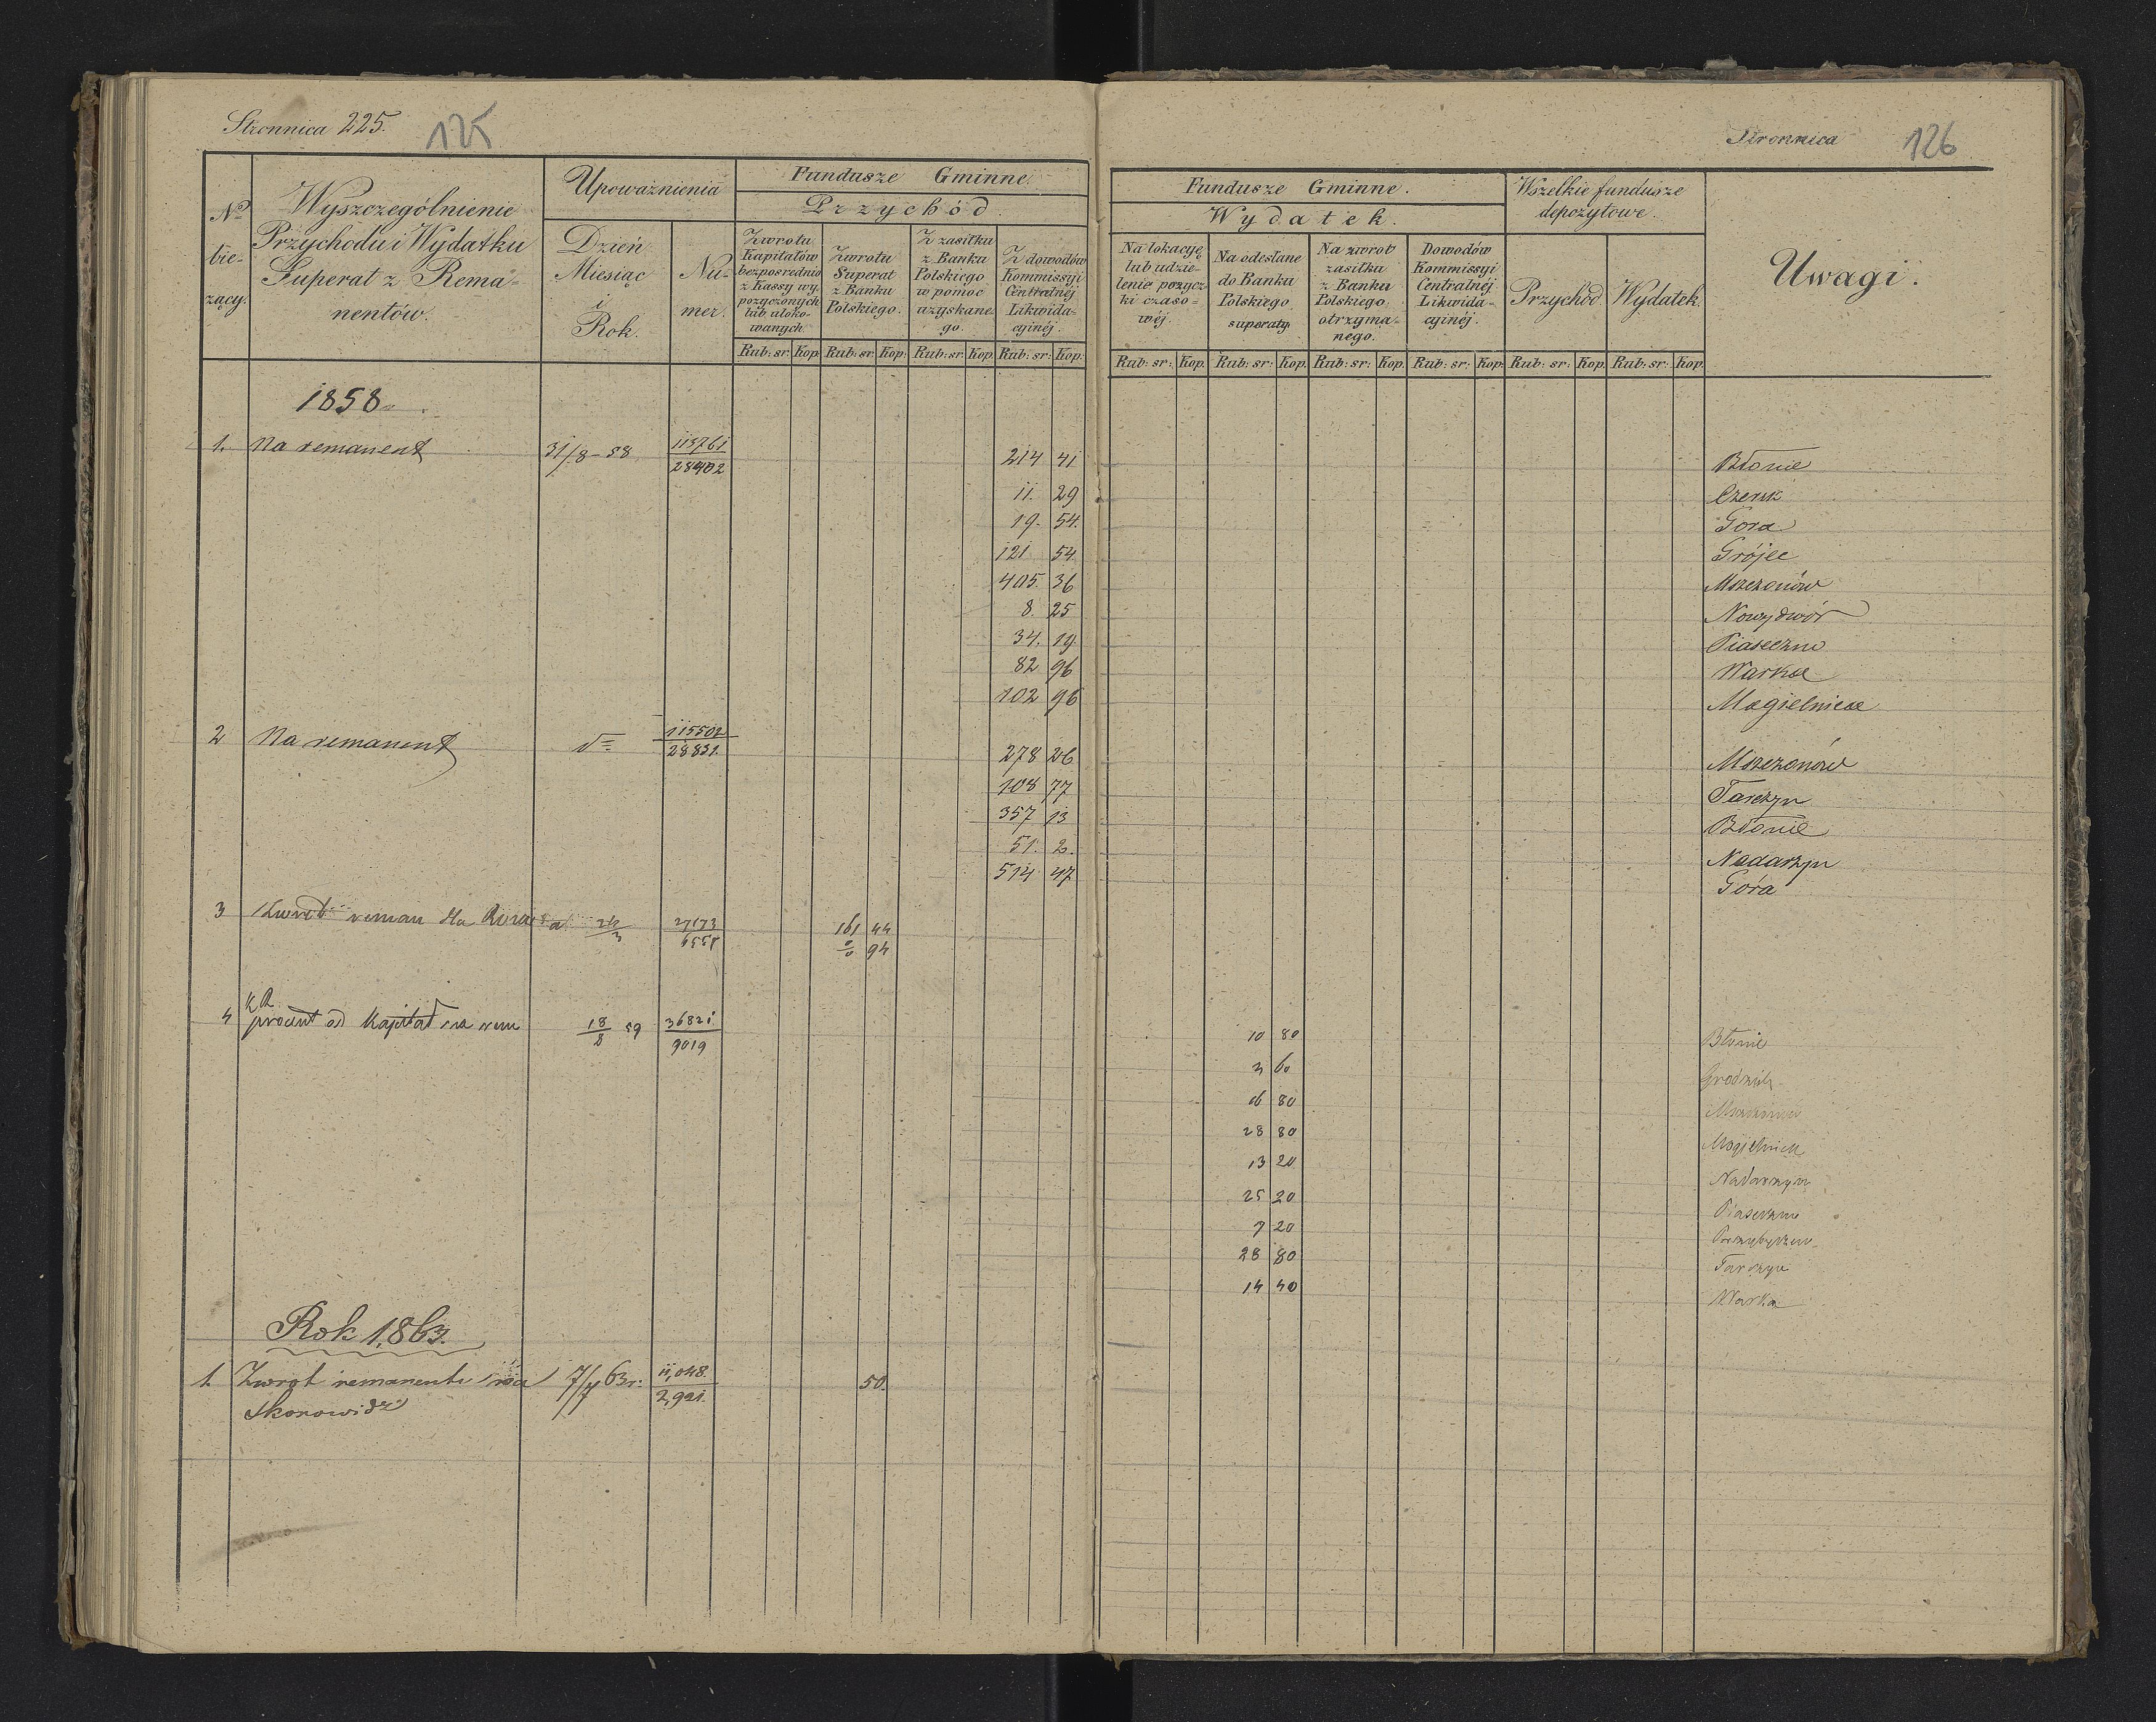 Stronnica 225. 125
Nº bieżący.
Wyszczególnienie Przychodu i Wydatku Superat z Remanentów.
Upoważnienia
Dzień Miesiąc i Rok.
Numer.
Fundusze Gminne.
Przychód.
Zwrotu Kapitałów bezpośrednio z Kassy wypożyczonych lub ulokowanych
Zwrotu Superat z Banku Polskiego.
Z zasiłku z Banku Polskiego w pomoc uzyskanego.
Z dowodów Kommissyi Centralnéj Likwidacyinéj.
Rub: sr: Kop: Rub: sr: Kop: Rub: sr: Kop: Rub: sr: Kop:
1858
1. Na remanent 31/8-58 113761 214 41
28402
11. 29
19. 54.
121 54
405. 36
8. 25
34. 14
82 96
102 96
2 Na remanent d= 115502
28831. 278 26
108 77
357 13
51. 2.
514 47
3 Zwrot reman dla 24/3 27173 161 44
6551 94
4 procent od Kapitał na rem 18/2 59 36821
9019
Rok 1863.
1. Zwrot remanentu 7/7 63r. 11,048. 50.
Skorowidz 2,921.
Stronnica 126
Fundusze Gminne.
Wydatek.
Na lokacyę lub udzielenie pożyczki czasowéj.
Na odesłane do Banku Polskiego superaty.
Na zwrot zasiłku z Banku Polskiego otrzymanego.
Dowodów Kommissyi Centralnéj Likwidacyinéj.
Wszelkie fundusze depozytowe.
Przychód Wydatek.
Uwagi.
Rub: sr: Kop. Rub: sr: Kop. Rub: sr: Kop. Rub: sr: Kop. Rub: sr: Kop. Rub: sr: Kop.
Błonie
Czersk
Gora
Grójec
Mszczonów
Nowydwór
Piaseczno
Warka
Magielnica
Mszczonów
Tarczyn
Błonie
Nadarzyn
Góra
10 80 Błonie
3 60 Grodzisk
80 Mszczonów
28 80 Mogielnica
13 20 Nadarzyn
25 20 Piaseczno
7 20
28 80 Tarczyn
14 40 Warka